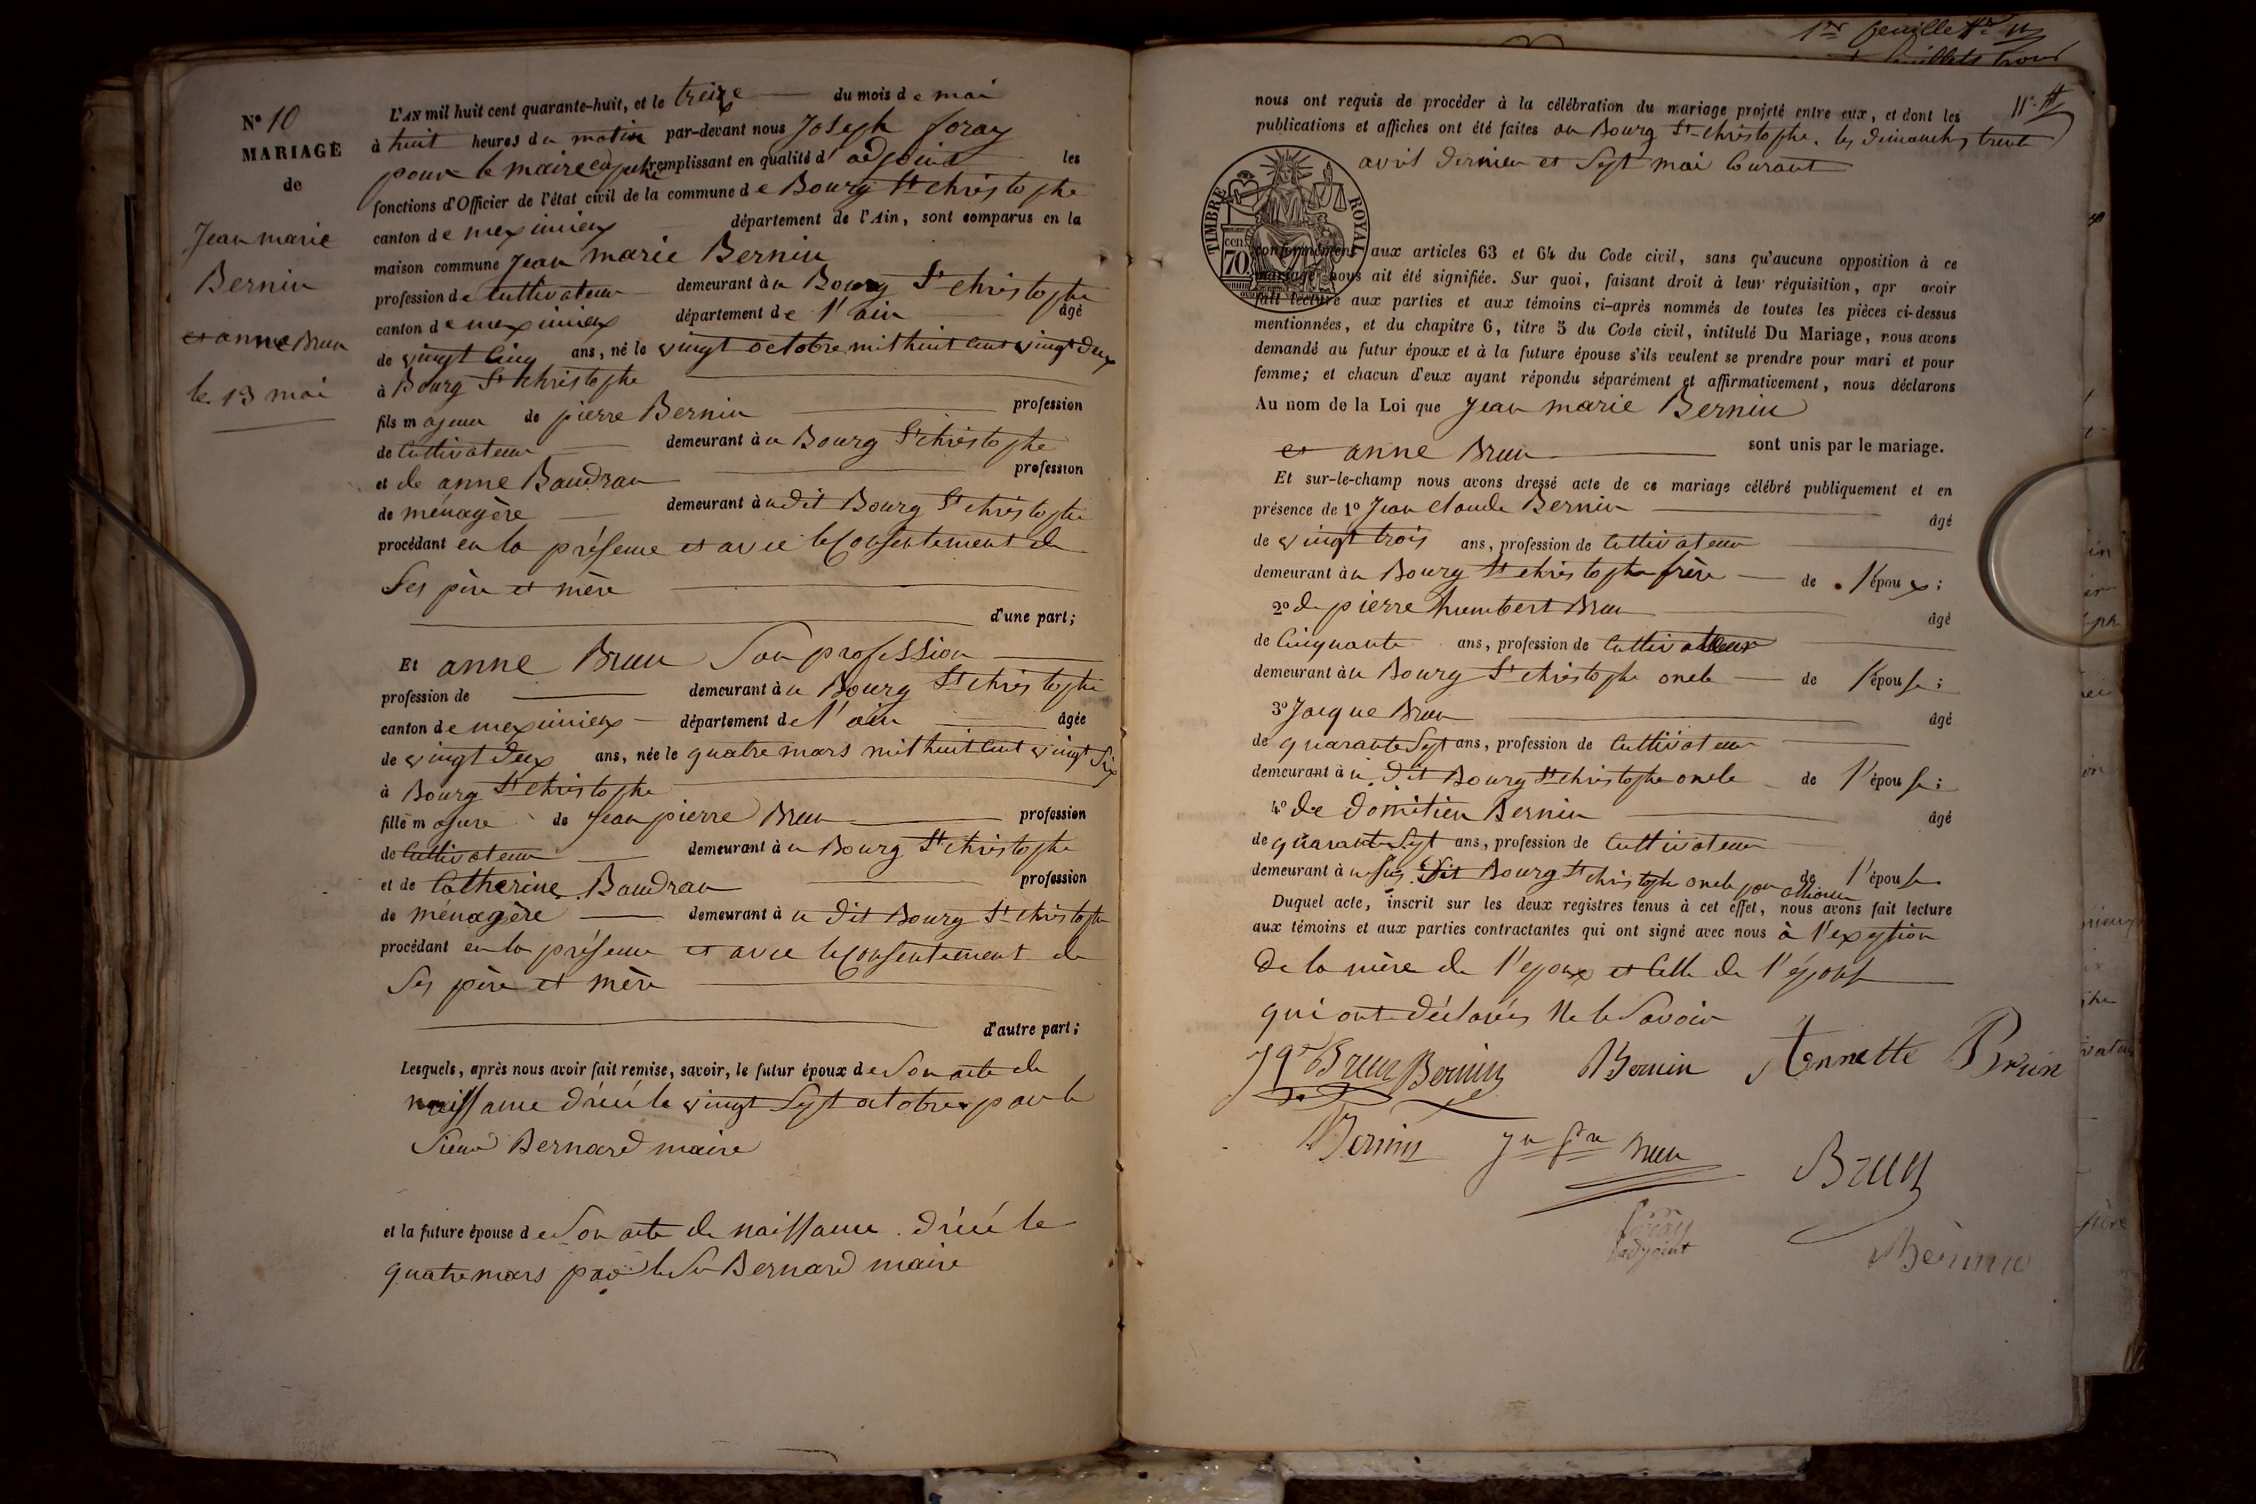 N.o 10
MARIAGE
de
Jean marie
Bernin
et anne Brun
le 13 mai
L'AN mil huit cent quarante-huit, et le treize du mois de mai
à huit heures du matin par-devant nous Joseph foray
pour le maire remplissant en qualité d'adjoint les
fonctions d'Officier de l'état civil de la commune de Bourg St christophe
canton de meximieux département de l'Ain, sont comparus en la
maison commune Jean marie Bernin
profession de Cultivateur demeurant à u Bourg St christophe
canton de meximieux département de l'ain âgé
de vingt cinq ans, né le vingt octobre mil huit cent vingt deux
à Bourg St christophe
fils majeur de pierre Bernin profession
de Cultivateur demeurant à u Bourg St christophe
et de anne Baudran profession
de ménagère demeurant à u dit Bourg St christophe
procédant en la présence et avec le Consentement de
Ses père et mère
d'une part;
Et anne Brun San profession
profession de demeurant à u Bourg St christophe
canton de meximieux département de l'ain âgée
de vingt deux ans, née le quatre mars mil huit cent vingt Six
à Bourg St christophe
fille majure de Jean pierre Brun profession
de Cultivateur demeurant à u Bourg St christophe
et de Catherine Baudran profession
de ménagère demeurant à u dit Bourg St christophe
procédant en la présence et avec le Consentement de
Ses père et mère
d'autre part;
Lesquels, après nous avoir fait remise, savoir, le futur époux de Son acte de
naissance dréé le vingt Sept octobre par le
Sieur Bernard maire
et la future épouse de Son acte de naissance dréé le
quatre mars par le Sr Bernard maire
1er feuillet
nous ont requis de procéder à la célébration du mariage projeté entre eux, et dont les
publications et affiches ont été faites au Bourg St christophe. les dimanches trente
avril dernier et Sept mai Courant
TIMBRE ROYAL
70 cen
conformément aux articles 63 et 64 du Code civil, sans qu'aucune opposition à ce
mariage nous ait été signifiée. Sur quoi, faisant droit à leur réquisition, apr avoir
fait lecture aux parties et aux témoins ci-après nommés de toutes les pièces ci-dessus
mentionnées, et du chapitre 6, titre 5 du Code civil, intitulé Du Mariage, nous avons
demandé au futur époux et à la future épouse s'ils veulent se prendre pour mari et pour
femme; et chacun d'eux ayant répondu séparément et affirmativement, nous déclarons
Au nom de la Loi que Jean marie Bernin
et anne Brun sont unis par le mariage.
Et sur-le-champ nous avons dressé acte de ce mariage célébré publiquement et en
présence de 1o Jean claude Bernin âgé
de vingt trois ans, profession de Cultivateur
demeurant à u Bourg St christophe frère de l'époux;
2o de pierre humbert Brun âgé
de Cinquante ans, profession de Cultivateur
demeurant à u Bourg St christophe oncle de l'épouse;
3o Jacque Brun âgé
de quarante Sept ans, profession de Cultivateur
demeurant à u dit Bourg St christophe oncle de l'épouse;
4o de domitien Bernin âgé
de quarante Sept ans, profession de Cultivateur
demeurant à u Sus dit Bourg St christophe oncle par alliance de l'épouse
Duquel acte, inscrit sur les deux registres tenus à cet effet, nous avons fait lecture
aux témoins et aux parties contractantes qui ont signé avec nous à l'exeption
de la mère de l'epoux et Celle de l'épouse
qui ont déclarés Ne le Savoir
Jqe Brun Bernin Bernin Annette Brun
Bernin Jn Pre Brun Brun
foray
adjoint
Bernin